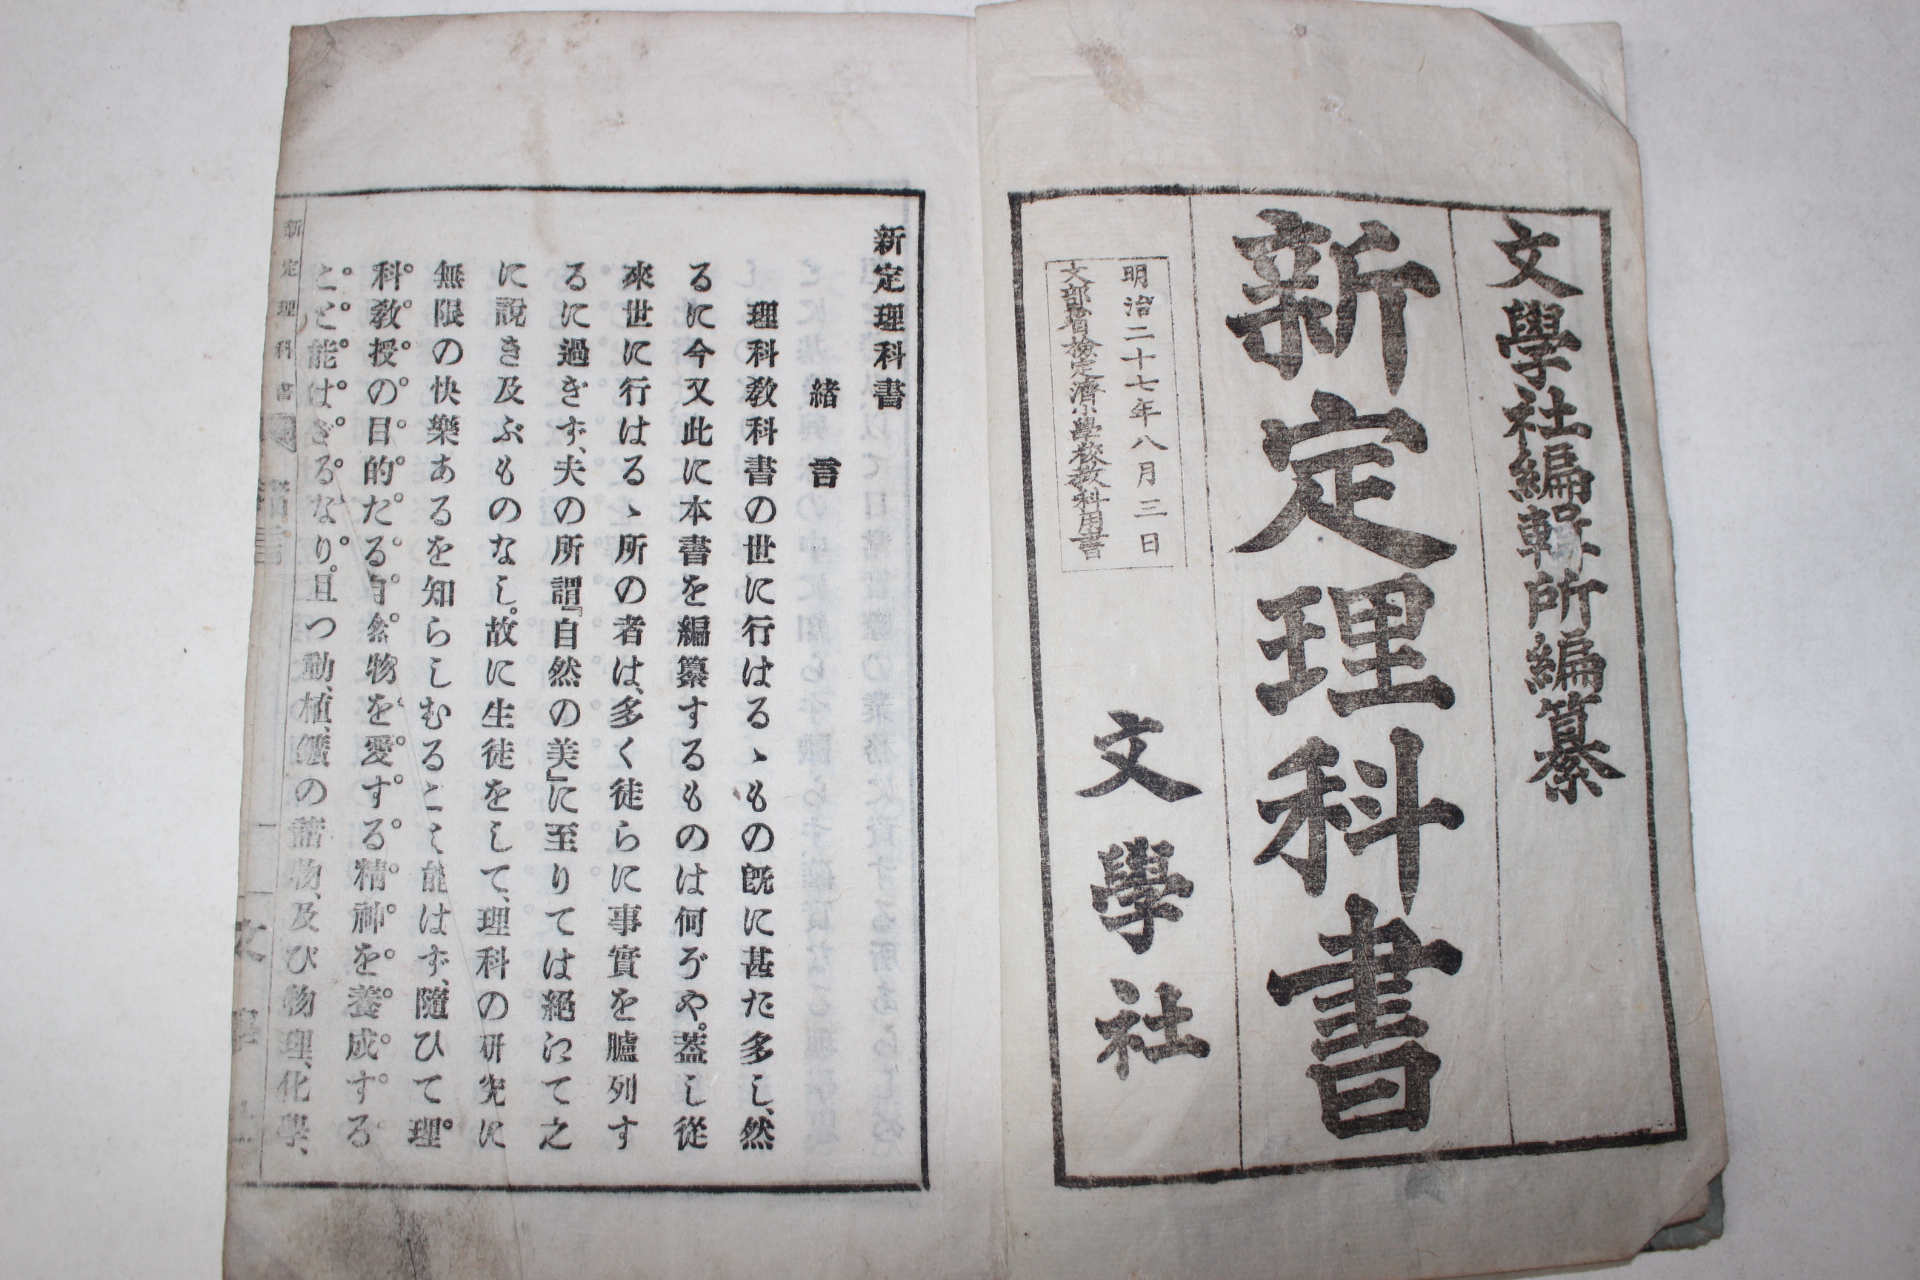 文學社編輯所編纂
新定理科書
明治二十七年八月三日
文部省檢定濟小學校敎科用書
文學社
新定理科書
緒言
理科敎科書の世に行はるゝもの旣に甚た多し、然
るに今又此に本書を編纂するものは何ぞや。蓋し從
來世に行はるゝ所の者は、多く徒らに事實を臚列す
るに過ぎず、夫の所謂『自然の美』に至りては絕江て之
に說き及ぶものなし。故に生徒をして、理科の硏究に
無限の快樂あるを知らしむること能はず、隨ひて理
科敎授の目的たる自然物を愛する精神を養成する
こと能はざるなり。且つ動、植、鑛の諸物、及び物理、化學、
新定理科書
緒言
一
文學社